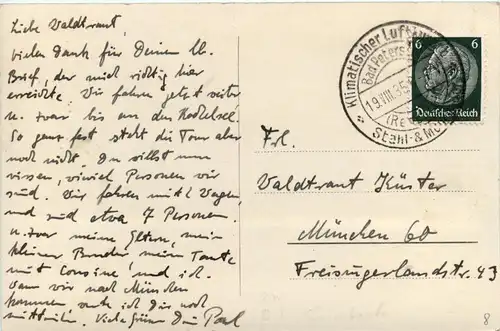 Liebe Waldtraut,
vielen Dank für Deinen lb.
Brief, der mich richtig hier
erreichte. Wir fahren jetzt weiter
u. zwar bis an den
So ganz fest steht die Tour aber
noch nicht. Du willst nun
wissen, wieviel Personen wir
sind. Wir fahren mit 2 Wagen,
und sind etwa 7 Personen.
u. zwar meine Eltern, mein
kleiner Bruder meine Tante
mit Cousine und ich.
Wann wir nach München
kommen, werde ich Dir noch
mitteilen. Viele Grüsse Dein
Klimatischer Luft
Bad Peters
19.VIII.35
Stahl- &
6 6
Deutsches Reich
Frl.
Waldtraut Küster
München 60
Freisingerlandstr. 43
8